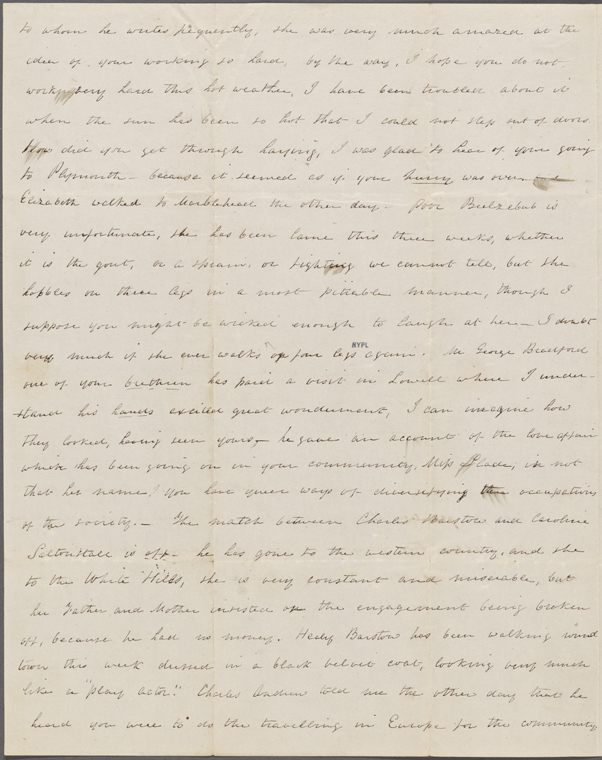 to whom he writes frequently, she was very much amazed at the
idea of your working so hard, by the way, I hope you do not
work very hard this hot weather, I have been troubled about it
when the sun has been so hot that I could not step out of doors.
How did you get through haying, I was glad to hear of your going
to Plymouth - because it seemed as if your hurry was over -
Elizabeth walked to Marblehead the other day - Poor Beelzebub is
very unfortunate, she has been lame this three weeks, whether
it is the gout, or a sprain, or fighting we cannot tell, but she
hobbles on three legs in a most pitiable manner, though I
suppose you might be wicked enough to laugh at her - I doubt
NYPL
very much if she ever walks on four legs again. Mr George Bradford
one of your brethren has paid a visit in Lowell where I under-
-stand his hands excited great wonderment, I can imagine how
they looked, having seen yours - he gave an account of the love affair
which has been going on in your community, Miss Slade, is not
that her name? You have queer ways of diversifying the occupations
of the society. - The match between Charles Barstow and Caroline
Saltonstall is off - he has gone to the western country, and she
to the White Hills, she is very constant and miserable, but
her Father and Mother insisted on the engagement being broken
off, because he had no money. Hesey Barstow has been walking round
town this week dressed in a black velvet coat, looking very much
like a "play actor." Charles Andrew told me the other day that he
heard you were to do the travelling in Europe for the community,